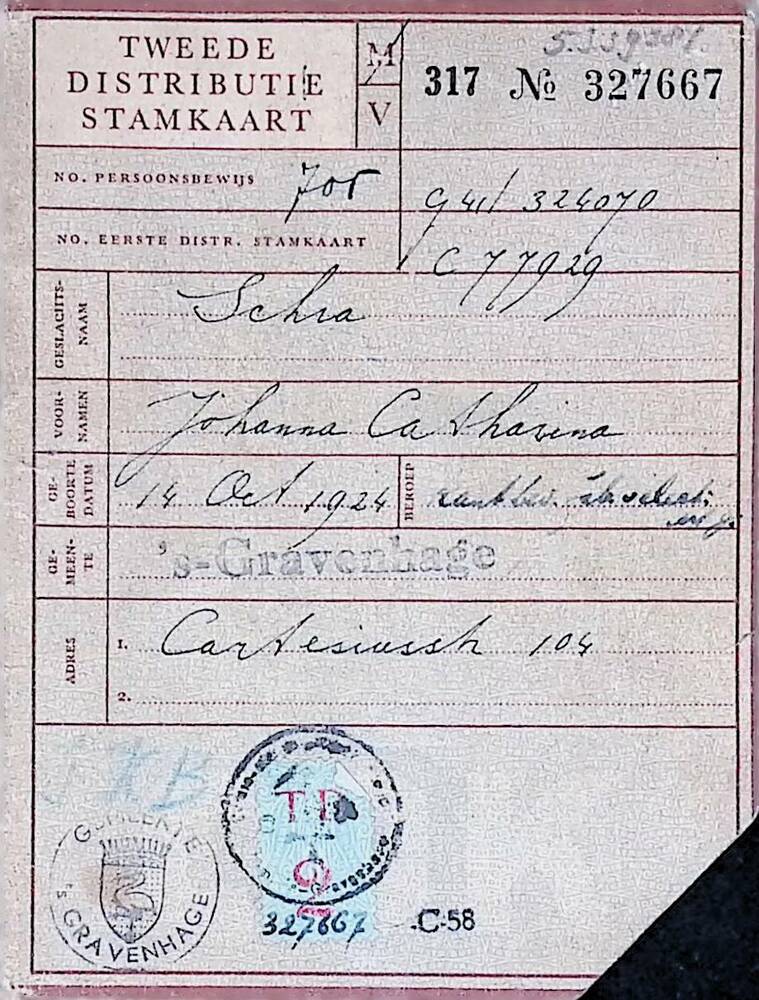 TWEEDE
DISTRIBUTIE
STAMKAART
M
V
317 № 327667
NO. PERSOONSBEWIJS
G 41/ 324070
NO. EERSTE DISTR. STAMKAART
C 77929
GESLACHTS-
NAAM
Schra
VOOR-
NAMEN
Johanna Catharina
GE-
BOORTE
DATUM
14 Oct 1924
BEROEP
GE-
MEEN-
TE
's-Gravenhage
ADRES
1. Cartesiusstr 104
2.
TD
327667
C-58
GEMEENTE
'S GRAVENHAGE